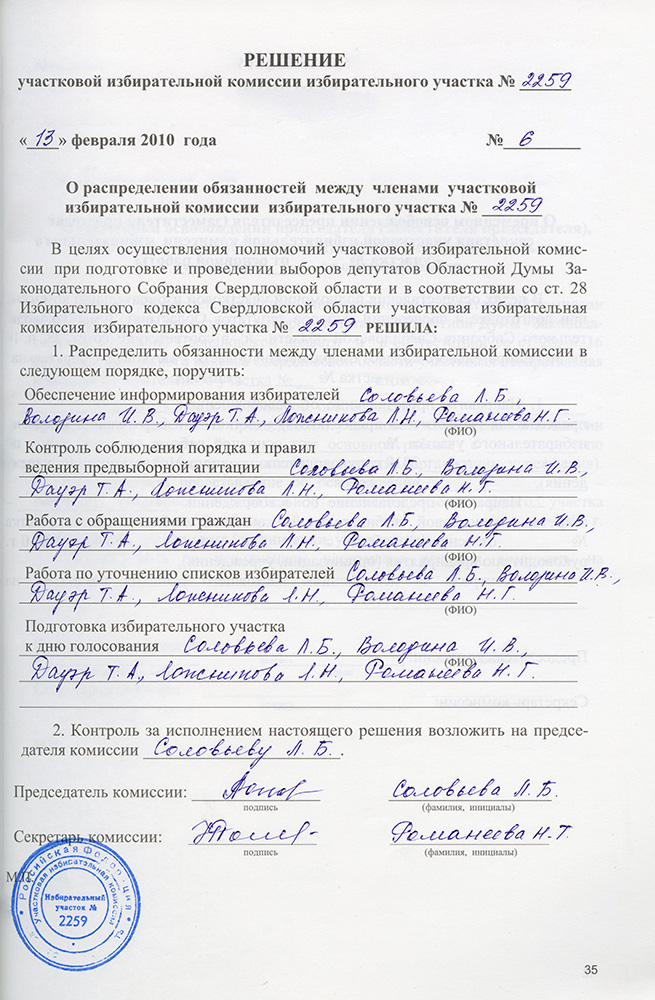 РЕШЕНИЕ
участковой избирательной комиссии избирательного участка № 2259
« 13 » февраля 2010 года № 6
О распределении обязанностей между членами участковой
избирательной комиссии избирательного участка № 2259
В целях осуществления полномочий участковой избирательной комис-
сии при подготовке и проведении выборов депутатов Областной Думы За-
конодательного Собрания Свердловской области и в соответствии со ст. 28
Избирательного кодекса Свердловской области участковая избирательная
комиссия избирательного участка № 2259 РЕШИЛА:
1. Распределить обязанности между членами избирательной комиссии в
следующем порядке, поручить:
Обеспечение информирования избирателей Соловьева Л.Б.,
Володина И.В., Дауэр Т.А., Ложникова Л.Н., Романеева Н.Г.
(ФИО)
Контроль соблюдения порядка и правил
ведения предвыборной агитации Соловьева Л.Б., Володина И.В.,
Дауэр Т.А., Ложникова Л.Н., Романеева Н.Г.
(ФИО)
Работа с обращениями граждан Соловьева Л.Б., Володина И.В.,
Дауэр Т.А., Ложникова Л.Н., Романеева Н.Г.
(ФИО)
Работа по уточнению списков избирателей Соловьева Л.Б., Володина И.В.,
Дауэр Т.А., Ложникова Л.Н., Романеева Н.Г.
(ФИО)
Подготовка избирательного участка
к дню голосования Соловьева Л.Б., Володина И.В.,
(ФИО)
Дауэр Т.А., Ложникова Л.Н., Романеева Н.Г.
2. Контроль за исполнением настоящего решения возложить на предсе-
дателя комиссии Соловьеву Л.Б.
Председатель комиссии: Соловьева Л.Б.
подпись (фамилия, инициалы)
Секретарь комиссии: Романеева Н.Г.
подпись (фамилия, инициалы)
М.П.
Российская Федерация
Участковая избирательная комиссия
Избирательный
участок №
2259
35